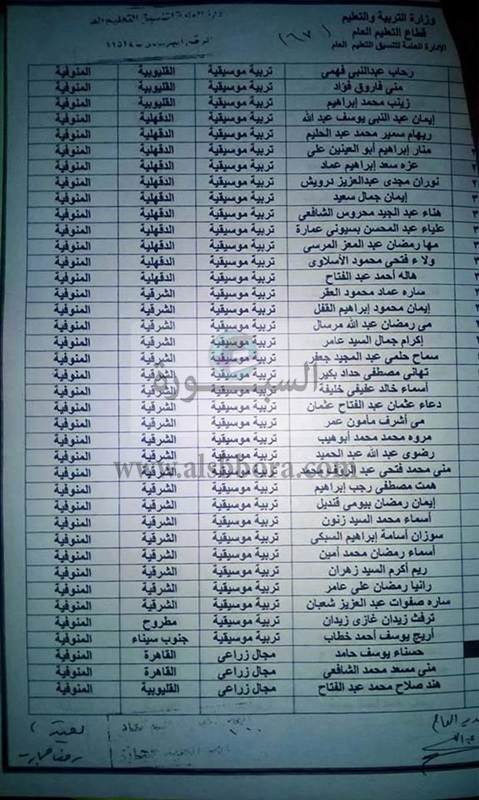 وزارة التربية والتعليم
قطاع التعليم العام
الإدارة العامة لتنسيق التعليم العام
(٦٧)
رحاب عبدالنبي فهمي تربية موسيقية القليوبية المنوفية
منى فاروق فؤاد تربية موسيقية القليوبية المنوفية
زينب محمد إبراهيم تربية موسيقية القليوبية المنوفية
إيمان عبد النبي يوسف عبد الله تربية موسيقية الدقهلية المنوفية
ريهام سمير محمد عبد الحليم تربية موسيقية الدقهلية المنوفية
منار إبراهيم أبو العينين على تربية موسيقية الدقهلية المنوفية
عزه سعد إبراهيم عماد تربية موسيقية الدقهلية المنوفية
نوران مجدى عبدالعزيز درويش تربية موسيقية الدقهلية المنوفية
إيمان جمال سعيد تربية موسيقية الدقهلية المنوفية
هناء عبد الجيد محروس الشافعي تربية موسيقية الدقهلية المنوفية
علياء عبد المحسن بسيوني عمارة تربية موسيقية الدقهلية المنوفية
مها رمضان عبد المعز المرسي تربية موسيقية الدقهلية المنوفية
ولاء فتحي محمود الأسلاوى تربية موسيقية الدقهلية المنوفية
هاله أحمد عبد الفتاح تربية موسيقية الدقهلية المنوفية
ساره عماد محمود العقر تربية موسيقية الشرقية المنوفية
إيمان محمود إبراهيم القفل تربية موسيقية الشرقية المنوفية
مى رمضان عبد الله مرسال تربية موسيقية الشرقية المنوفية
إكرام جمال السيد عامر تربية موسيقية الشرقية المنوفية
سماح حلمى عبد المجيد جعفر تربية موسيقية الشرقية المنوفية
تهاني مصطفي حداد بكير تربية موسيقية الشرقية المنوفية
أسماء خالد عفيفي خليفة تربية موسيقية الشرقية المنوفية
دعاء عثمان عبد الفتاح عثمان تربية موسيقية الشرقية المنوفية
مى أشرف مأمون عمر تربية موسيقية الشرقية المنوفية
مروه محمد محمد أبوهيب تربية موسيقية الشرقية المنوفية
رضوى عبد الله عبد الحميد تربية موسيقية الشرقية المنوفية
منى محمد فتحي عبد تربية موسيقية الشرقية المنوفية
همت مصطفى رجب إبراهيم تربية موسيقية الشرقية المنوفية
إيمان رمضان بيومى قنديل تربية موسيقية الشرقية المنوفية
أسماء محمد السيد زنون تربية موسيقية الشرقية المنوفية
سوزان أسامة إبراهيم السبكى تربية موسيقية الشرقية المنوفية
أسماء رمضان محمد أمين تربية موسيقية الشرقية المنوفية
ريم أكرم السيد زهران تربية موسيقية الشرقية المنوفية
رانيا رمضان علي عامر تربية موسيقية الشرقية المنوفية
ساره صفوات عبد العزيز شعبان تربية موسيقية الشرقية المنوفية
ترفث زيدان غازى زيدان تربية موسيقية مطروح المنوفية
أريج يوسف أحمد خطاب تربية موسيقية جنوب سيناء المنوفية
حسناء يوسف حامد مجال زراعي القاهرة المنوفية
منى مسعد محمد الشافعي مجال زراعي القاهرة المنوفية
هند صلاح محمد عبد الفتاح مجال زراعي القليوبية المنوفية
السبورة
www.alsbbora.com